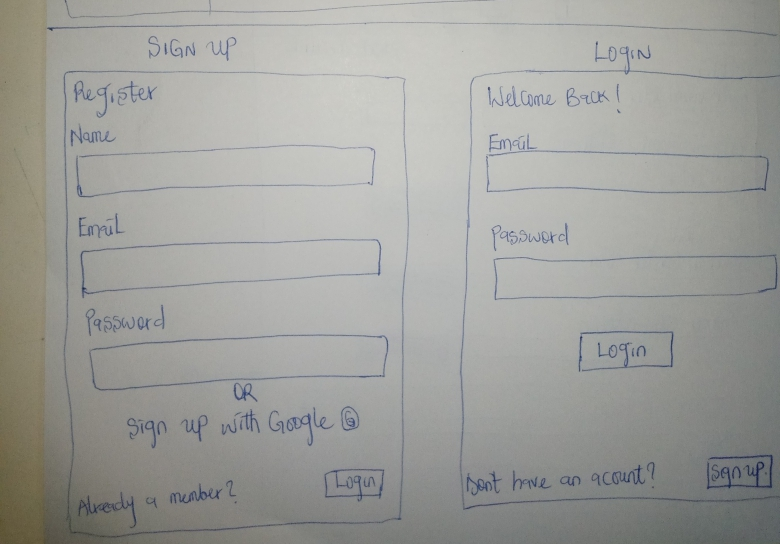 SIGN UP
Register
Name
Email
Password
OR
Sign up with Google G
Already a member? Login
LOGIN
Welcome Back!
Email
Password
Login
Dont have an acount? Sign up